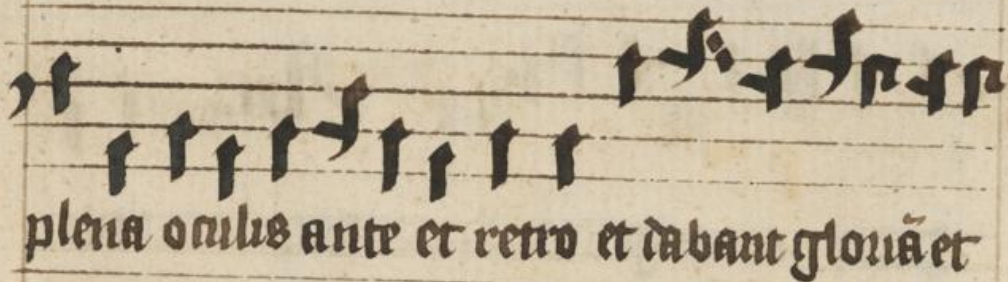 plena oculis ante et retro et dabant gloriã et